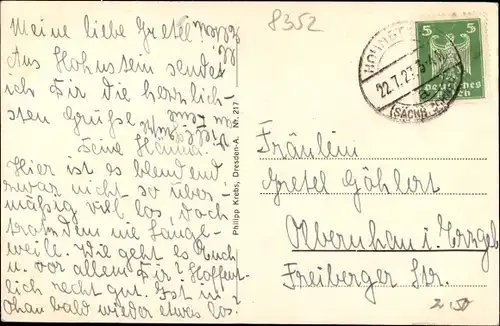 8352
Meine liebe Gretel
Aus Hohnstein sendet
ich Dir die herzlich-
sten Grüße
Deine Hanna.
Hier ist es blendend
zwar nicht so über-
mäßig viel los, doch
trotzdem nie Lange-
weile. Wie geht es Euch
u. vor allem Dir? Hoffent-
lich recht gut. Ist in
Olhau bald wieder etwas los.
Philipp Krebs, Dresden-A. Nr. 217
22.7.27
(SÄCHS.
5 5
Deutsches
Reich
Fräulein
Gretel Göhlert
Olbernhau i. Erzgeb
Freiberger Str.
2.50